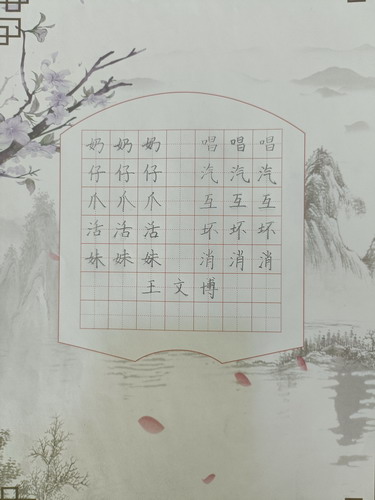 奶奶奶 唱唱唱
仔仔仔 汽汽汽
爪爪爪 互互互
活活活 坏坏坏
妹妹妹 消消消
王文博